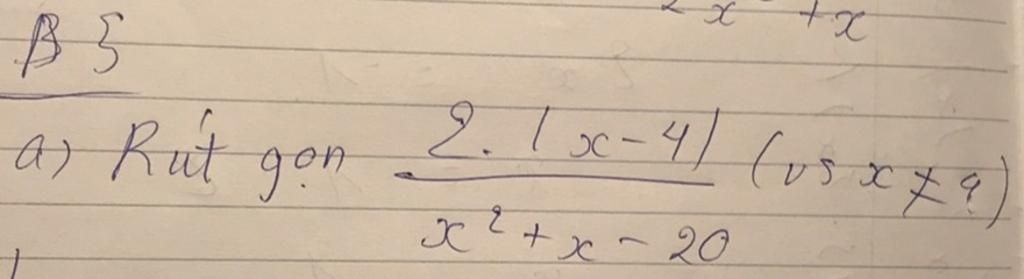 2x + x
B3
a) Rút gọn \frac{2.|x-4|}{x^2+x-20} (vs x ≠ 4)